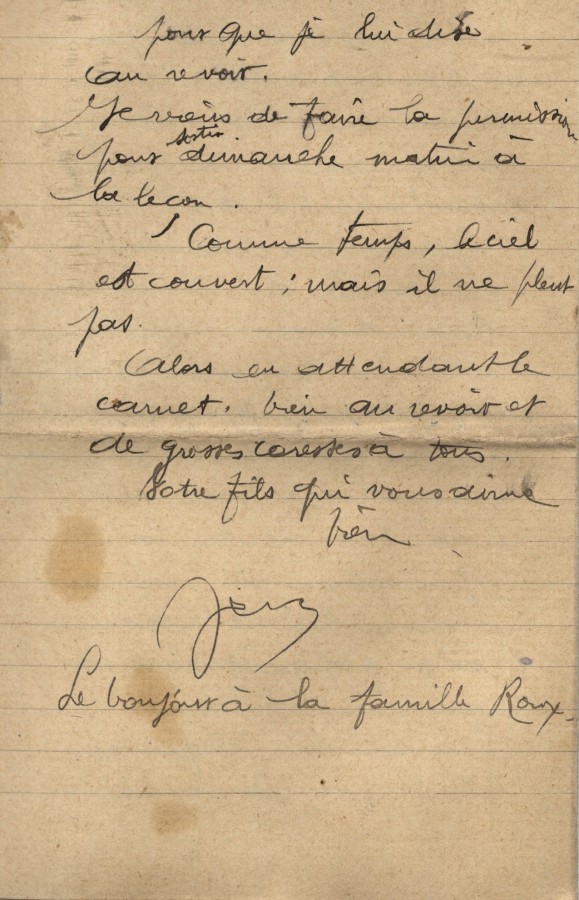 pour que je lui dise
au revoir.
Je viens de faire la permission
pour sortir dimanche matin à
la leçon.
Comme temps, le ciel
est couvert ; mais il ne pleut
pas.
Alors en attendant le
carnet. bien au revoir et
de grosses caresses à tous.
Votre fils qui vous aime
bien
Le bonjour à la famille Roux.